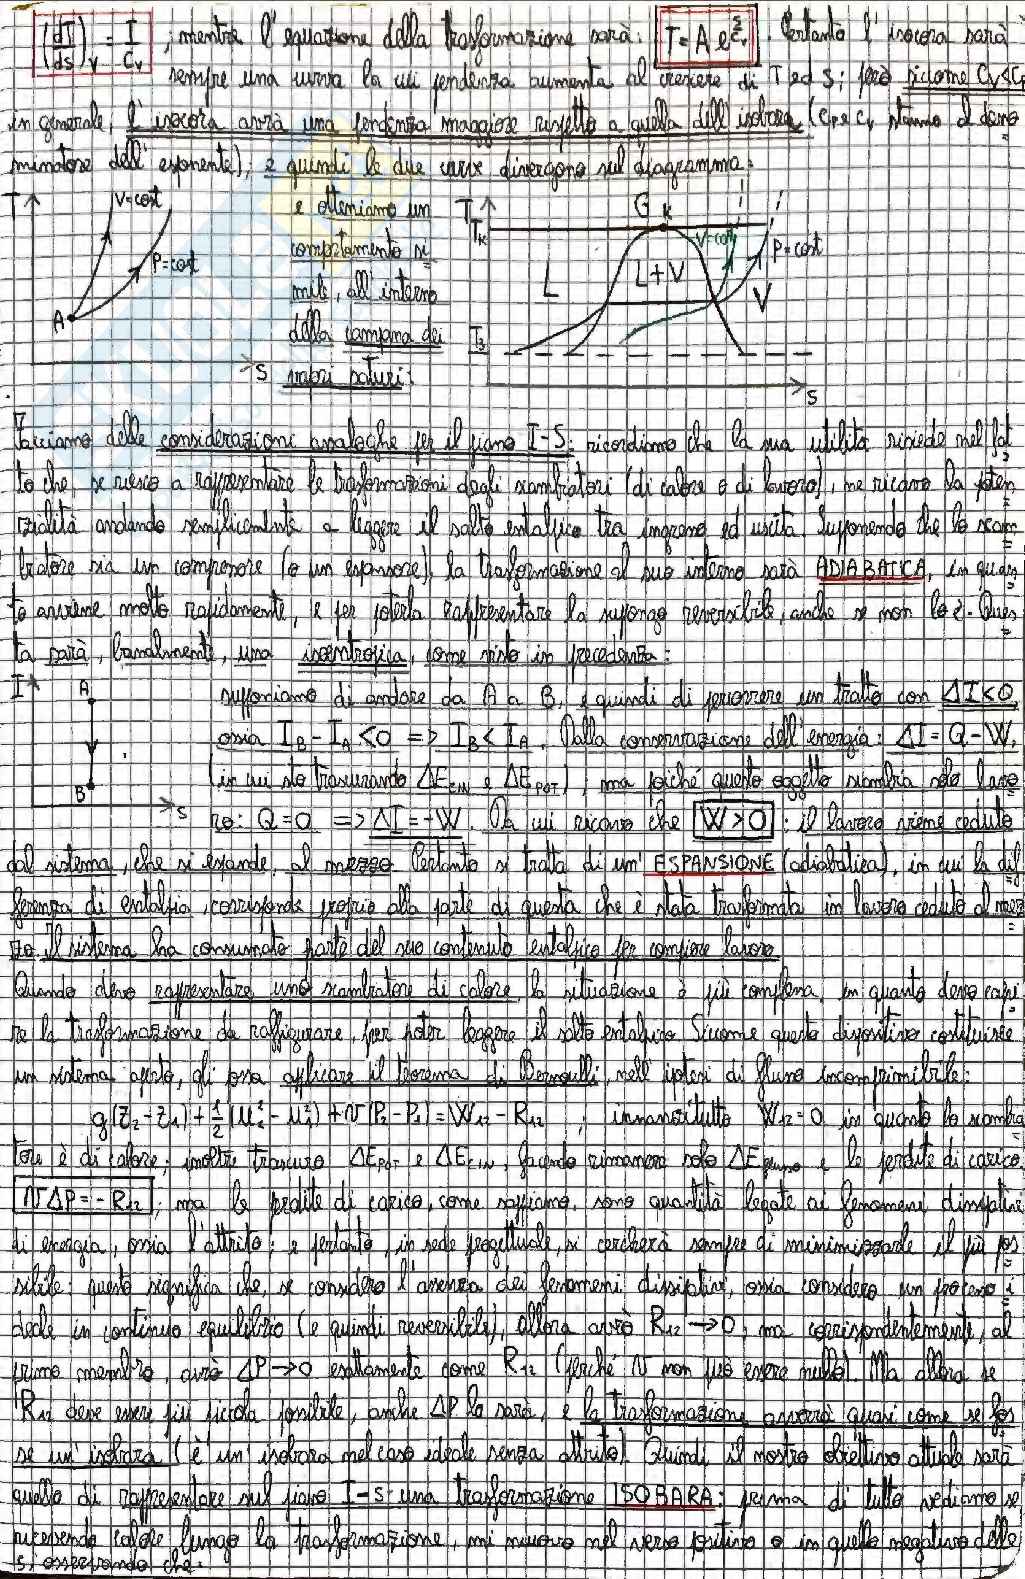 (dT/ds)_V = T/C_V ; mentre l'equazione della trasformazione sarà: T = A e^(s/C_V). Pertanto l'isocora sarà
sempre una curva la cui pendenza aumenta al crescere di T ed s; però siccome C_V<C_P
in generale, l'isocora avrà una pendenza maggiore rispetto a quella dell'isobara (C_P e C_V stanno al deno
minatore dell'esponente), e quindi le due curve divergono sul diagramma:
T
V=cost
P=cost
A
s
e otteniamo un
comportamento si
mile, all'interno
della campana dei
vapori saturi:
T
T_K
G
K
V=cost
P=cost
L
L+V
V
T_3
s
Facciamo delle considerazioni analoghe per il piano I-S: ricordiamo che la sua utilità risiede nel fat
to che, se riesco a rappresentare le trasformazioni degli scambiatori (di calore o di lavoro), ne ricavo la poten
zialità andando semplicemente a leggere il salto entalpico tra ingresso ed uscita. Supponendo che lo scam
biatore sia un compressore (o un espansore), la trasformazione al suo interno sarà ADIABATICA, in quan
to avviene molto rapidamente, e per poterla rappresentare la suppongo reversibile, anche se non lo è. Ques
ta sarà, banalmente, una isoentropica, come visto in precedenza:
I
A
B
s
supponiamo di andare da A a B, e quindi di percorrere un tratto con ΔI<0,
ossia I_B - I_A <0 => I_B < I_A. Dalla conservazione dell'energia: ΔI = Q - W,
(in cui sto trascurando ΔE_CIN e ΔE_POT); ma poiché questo oggetto scambia solo lavo
ro: Q=0 => ΔI=-W. Da cui ricavo che W>0 : il lavoro viene ceduto
dal sistema, che si espande, al mezzo. Pertanto si tratta di un'ESPANSIONE (adiabatica), in cui la dif
ferenza di entalpia, corrisponde proprio alla parte di questa che è stata trasformata in lavoro ceduto al mez
zo. Il sistema ha consumato parte del suo contenuto entalpico per compiere lavoro.
Quando devo rappresentare uno scambiatore di calore, la situazione è più complessa, in quanto devo capi
re la trasformazione da raffigurare, per poter leggere il salto entalpico. Siccome questo dispositivo costituisce
un sistema aperto, gli posso applicare il teorema di Bernoulli, nell'ipotesi di fluido incomprimibile:
g(z_2-z_1)+1/2(u_2^2-u_1^2)+v(P_2-P_1)=W_12-R_12 ; innanzitutto W_12=0 in quanto lo scambia
tore è di calore; inoltre trascuro ΔE_POT e ΔE_CIN, facendo rimanere solo ΔE_FLUSSO e le perdite di carico:
vΔP=-R_12 ; ma le perdite di carico, come sappiamo, sono quantità legate ai fenomeni dissipativi
di energia, ossia l'attrito; e pertanto, in sede progettuale, si cercherà sempre di minimizzarle il più pos
sibile: questo significa che, se considero l'assenza dei fenomeni dissipativi, ossia considero un processo i
deale in continuo equilibrio (e quindi reversibile), allora avrò R_12→0; ma corrispondentemente, al
primo membro, avrò ΔP→0 esattamente come R_12 (perché v non può essere nullo). Ma allora se
R_12 deve essere più piccola possibile, anche ΔP lo sarà, e la trasformazione avverrà quasi come se fos
se un'isobara (è un'isobara nel caso ideale senza attrito). Quindi il nostro obiettivo attuale sarà
quello di rappresentare sul piano I-s una trasformazione ISOBARA: prima di tutto vediamo se
ricevendo calore lungo la trasformazione, mi muovo nel verso positivo o in quello negativo delle
s, osservando che: